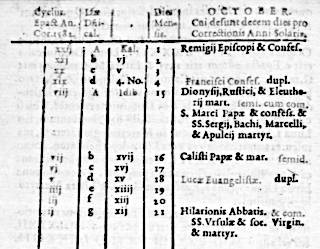 Cyclus Lræ Dies OCTOBER.
Epact. An. Dñi- Men- Cui desunt decem dies pro
Cor. 1582. cal. sis. Correctionis Anni Solaris.
xxij A Kal. 1 Remigij Episcopi & Confes.
b vj 2
xx c v 3
xix d 4. No. 4 Francisci Confes. dupl.
viij A Idib 15 Dionysij, Rustici, & Eleuthe-
rij mart. sem. cum com.
S. Marci Papæ & confess. &
SS. Sergij, Bachi, Marcelli,
& Apuleij martyr.
vij b xvij 16 Calisti Papæ & mar. semid.
vj c xvj 17
v d xv 18 Lucæ Euangelistæ. dupl.
iiij e xiiij 19
iij f xiij 20
ij g xij 21 Hilarionis Abbatis. & com.
SS. Vrsulæ & soc. Virgin.
& martyr.